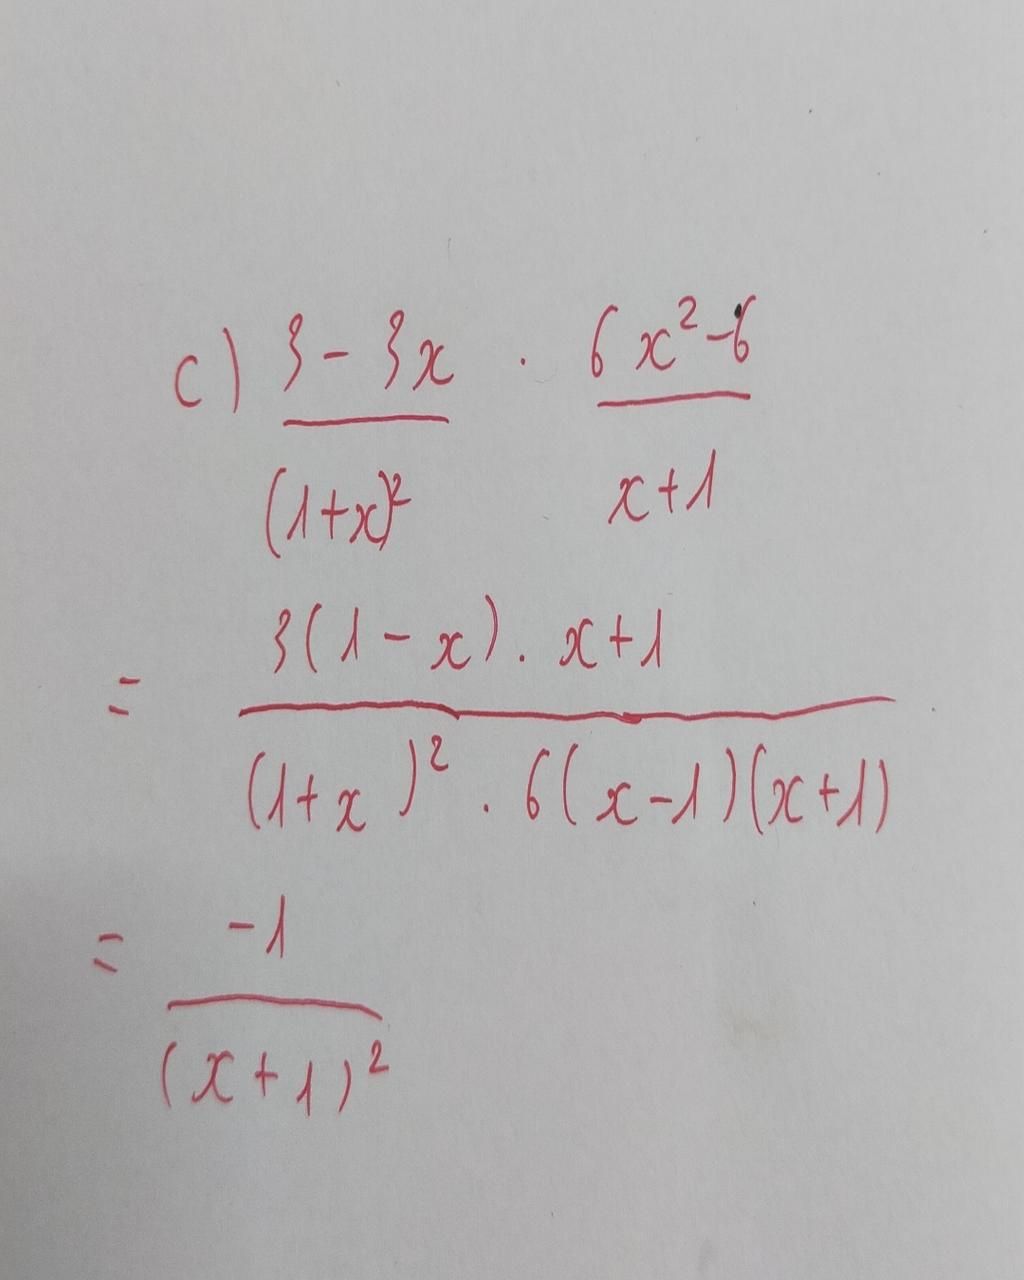 c) 3-3x/(1+x)² . 6x²-6/x+1
= 3(1-x). x+1/(1+x)² . 6(x-1)(x+1)
= -1/(x+1)²